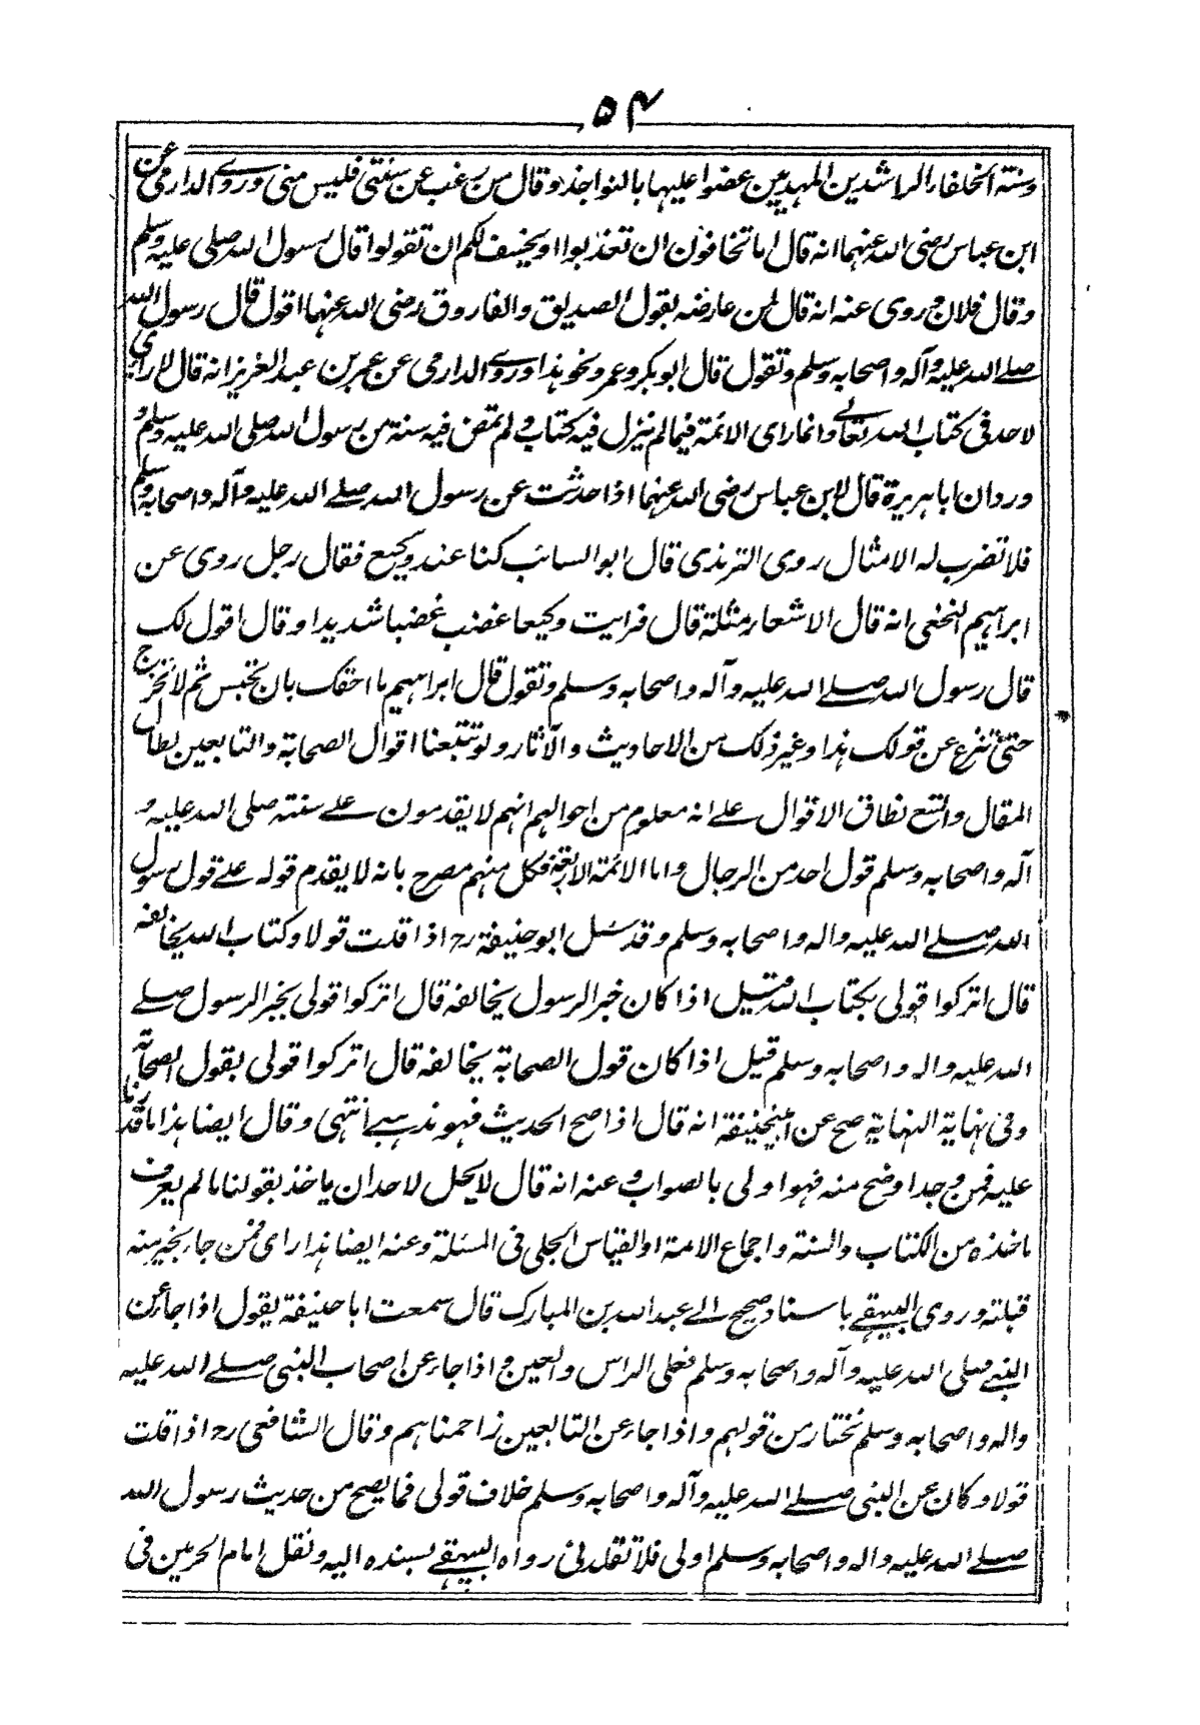 ۵۴
وسنة الخلفاء الراشدين المهديين عضوا عليها بالنواجذ وقال من رغب عن سنتي فليس مني وروى الدارمي عن
ابن عباس رضى الله عنهما انه قال اما تخافون ان تعذبوا او يخسف لكم ان تقولوا قال رسول الله صلى عليه وسلم
وقال فلان وروى عنه انه قال لمن عارضه بقول الصديق والفاروق رضى الله عنهما اقول قال رسول الله
صلے الله عليه وآله واصحابه وسلم وتقول قال ابو بكر وعمر ونحو هذا وروى الدارمى عن عمر بن عبد العزيز انه قال لا راي
لاحد فى كتاب الله تعالے وانما راى الائمة فيما لم ينزل فيه كتاب ولم تمض فيه سنة من رسول الله صلى الله عليه وسلم و
وردان ابا هريرة قال لابن عباس رضى الله عنهما اذا حدثت عن رسول الله صلے الله عليه وآله واصحابه وسلم
فلا تضرب له الامثال روى الترمذى قال ابو السائب كنا عند وكيع فقال رجل روى عن
ابراهيم النخعى انه قال الاشعار مثلة قال فرايت وكيعا غضب غضبا شديدا وقال اقول لك
قال رسول الله صلے الله عليه وآله واصحابه وسلم وتقول قال ابراهيم ما احقك بان تحبس ثم لا تخرج
حتى تنزع عن قولك هذا وغير ذلك من الاحاديث والآثار ولو تتبعنا اقوال الصحابة والتابعين لطال
المقال واتسع نطاق الاقوال علے انه معلوم من احوالهم انهم لا يقدمون علے سنته صلى الله عليه و
آله واصحابه وسلم قول احد من الرجال واما الائمة الاربعة فكل منهم مصرح بانه لا يقدم قوله علے قول رسول
الله صلے الله عليه واله واصحابه وسلم وقد سئل ابو حنيفة رح اذا قلت قولا وكتاب الله يخالفه
قال اتركوا قولى بكتاب الله قيل اذا كان خبر الرسول يخالفه قال اتركوا قولى بخبر الرسول صلے
الله عليه واله واصحابه وسلم قيل اذا كان قول الصحابة يخالفه قال اتركوا قولى بقول الصحابة
وفى نهاية النهاية صح عن ابيحنيفة انه قال اذا صح الحديث فهو مذهبے انتهى وقال ايضا هذا ما قدرنا
عليه فمن وجد اوضح منه فهو اولى بالصواب وعنه انه قال لا يحل لاحد ان ياخذ بقولنا ما لم يعرف
ماخذه من الكتاب والسنة واجماع الامة او القياس الجلى فى المسئلة وعنه ايضا هذا راى فمن جاء بخير منه
قبلته وروى البيهقے باسناد صحيح الے عبد الله بن المبارك قال سمعت ابا حنيفة يقول اذا جاء عن
النبے صلى الله عليه وآله واصحابه وسلم فعلى الراس والعين واذا جاء عن اصحاب النبى صلے الله عليه
واله واصحابه وسلم نختار من قولهم واذا جاء عن التابعين زاحمناهم وقال الشافعى رح اذا قلت
قولا وكان عن النبى صلے الله عليه وآله واصحابه وسلم خلاف قولى فما يصح من حديث رسول الله
صلے الله عليه واله واصحابه وسلم اولى فلا تقلدنى رواه البيهقے بسنده اليه ونقل امام الحرمين فى